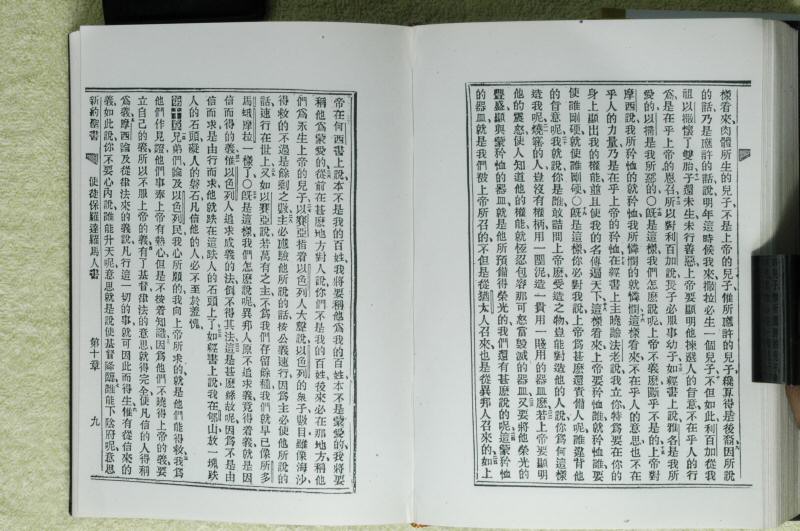 樣看來肉體所生的兒子不是上帝的兒子惟所應許的兒子纔算得是後裔因所說
的話乃是應許的話說明年這時候我來撒拉必生一個兒子不但如此利百加從我
祖以撒懷了雙胎子還未生未行善惡上帝要顯明他揀選人的旨意不在乎人的行
爲是在乎上帝的恩召所以對利百加說長子必服事幼子如經書上說雅各是我所
愛的以掃是我所惡的○旣是這樣我們怎麽說呢上帝不義麽斷乎不是的上帝對
摩西說我所矜恤的就矜恤我所憐憫的就憐憫這樣看來不在乎人的意思也不在
乎人的力量乃是在乎上帝的矜恤在經書上主曉諭法老說我立你特爲要在你的
身上顯出我的權能並且使我的名傳遍天下這樣看來上帝要矜恤誰就矜恤誰要
使誰剛硬就使誰剛硬○旣是這樣你必對我說上帝爲甚麽還責備人呢誰違背他
的旨意呢我就說你是誰敢詰問上帝麽受造之物豈能對造他的人說你爲何這樣
造我呢燒窰的人豈沒有權柄用一團泥造一貴用一賤用的器皿麽若上帝要顯明
他的震怒使人知道他的權能就極忍包容那可怒當毀滅的器皿又要將他榮光的
豐盛顯與蒙矜恤的器皿就是他所預備得榮光的我們還有甚麽說的呢這蒙矜恤
的器皿就是我們被上帝所召的不但是從猶太人召來也是從異邦人召來的如上
帝在何西書上說本不是我的百姓我將要稱他爲我的百姓本不是蒙愛的我將要
稱他爲蒙愛的從前在甚麽地方對人說你們不是我的百姓後來必在那地方稱他
們爲永生上帝的兒子以賽亞指着以色列人大聲說以色列的衆子數目雖像海沙
得救的不過是餘剩之數主必應驗他所說的話按公義速行因爲主必使他所說的
話速行在世上又如以賽亞說若萬有之主不爲我們存留餘種我們就早已像所多
馬蛾摩拉一樣了○旣是這樣我們怎麽說呢異邦人原不追求義竟得着義就是因
信而得的義惟以色列人追求成義的法倒不得其法這是甚麽緣故呢因爲不是由
信而求是由行而求他就跌在這跌人的石頭上了如經書上說我在郇山放一塊跌
人的石頭礙人的磐石凡信他的人必不至於羞愧
第十章兄弟們論及以色列民我心所願的我向上帝所求的就是他們能得救我爲
他們作見證他們事奉上帝有熱心但是不按着知識因爲他們不曉得上帝的義要
立自己的義所以不服上帝的義有了基督律法的意思就得完全使凡信的人得稱
爲義摩西論及從律法來的義說凡行這一切的事就可因此而得生惟有從信來的
義如此說你不要心內說誰能升天呢意思就是說使基督降臨誰能下陰府呢意思
新約聖書 使徒保羅達羅馬人書 第十章 九